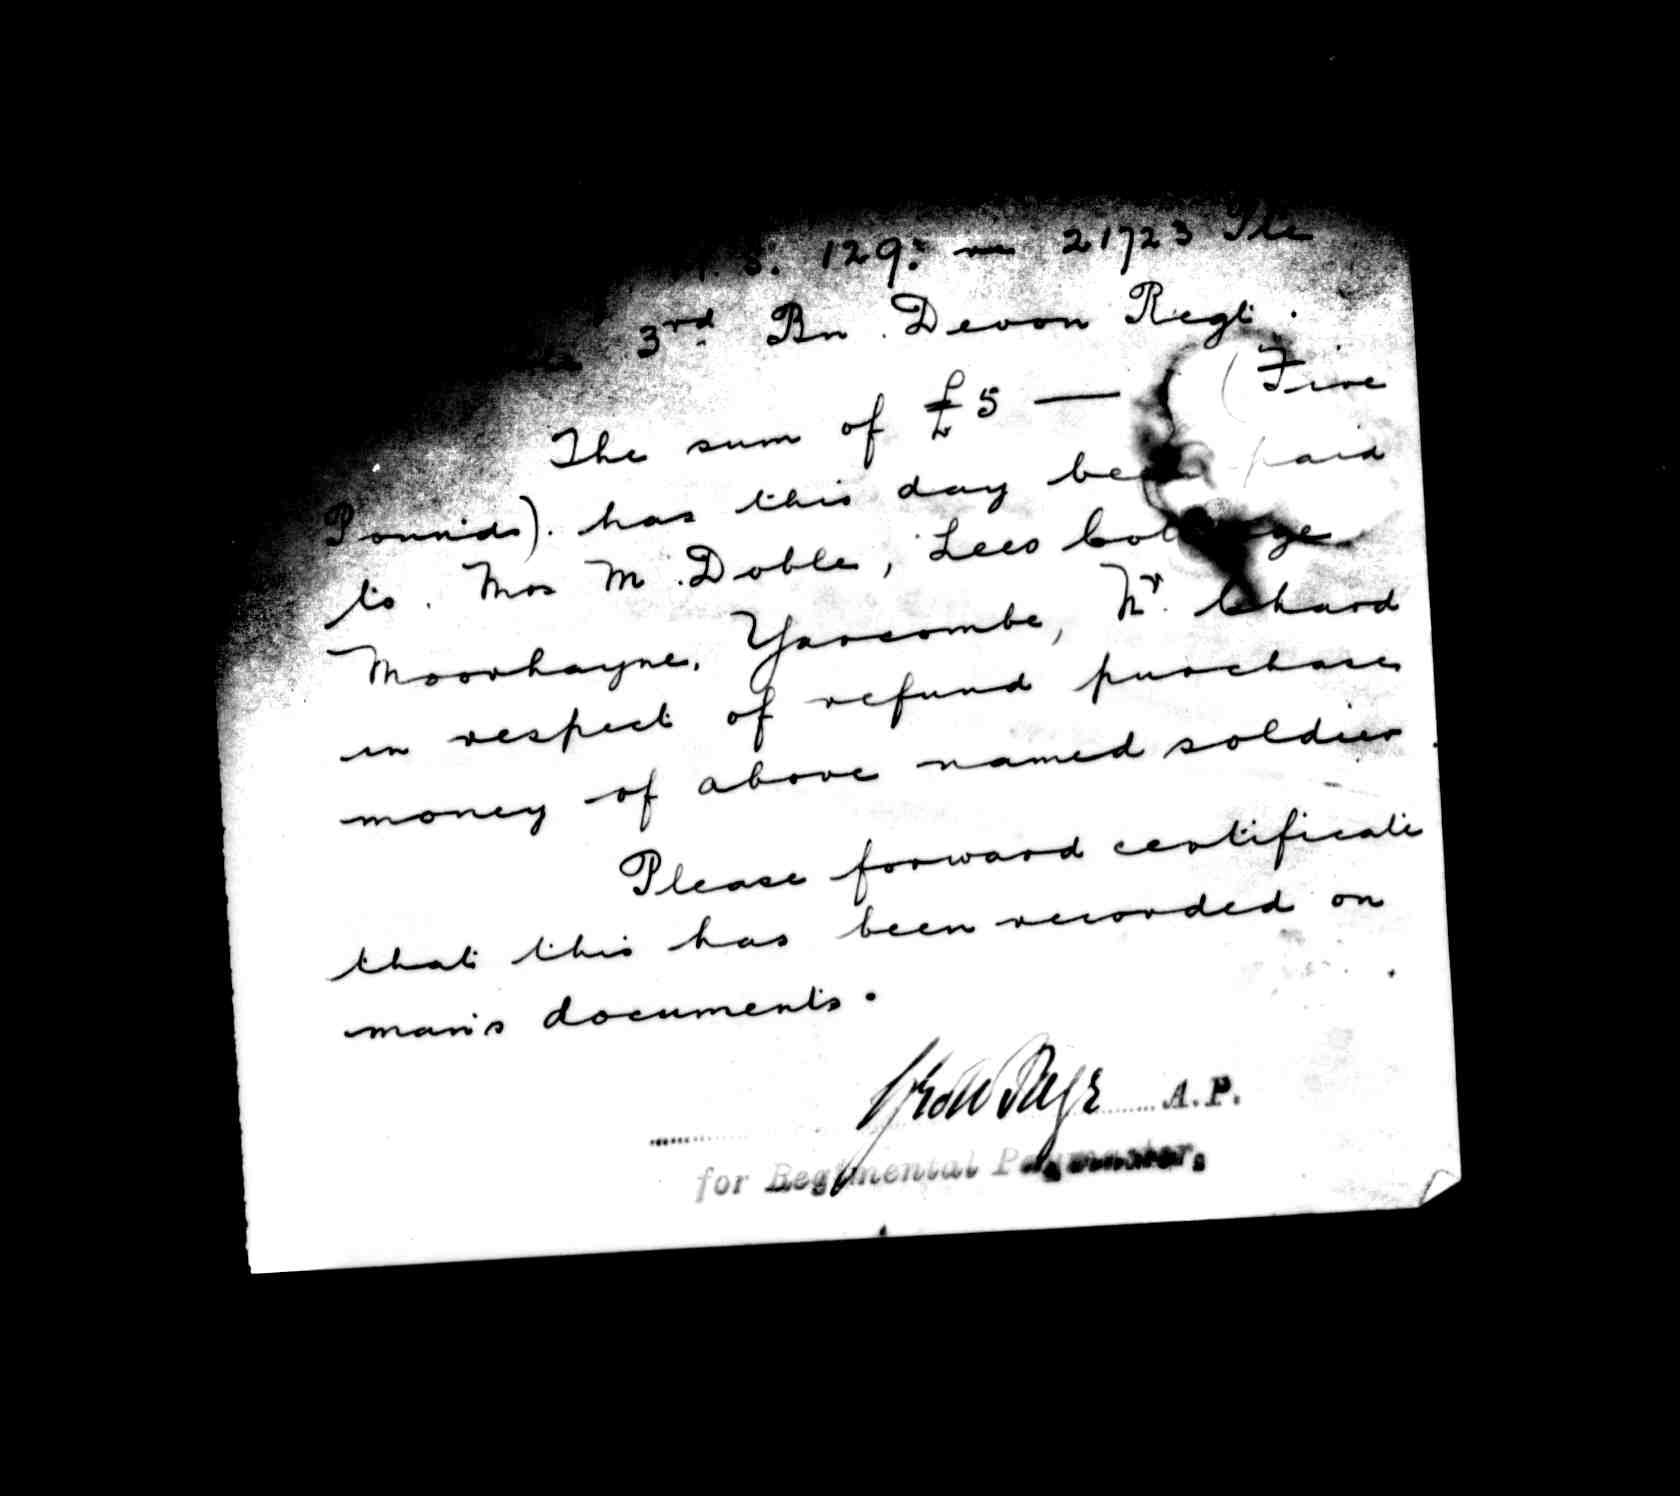 S. 129: re 21723 Pte
3rd Bn. Devon Regt.
The sum of £5 — (Five
Pounds). has this day been paid
to. Mrs M. Doble, Lees Cottage
Moorhayne, Yarcombe, Nr. Chard
in respect of refund purchase
money of above named soldier
Please forward certificate
that this has been recorded on
man's documents.
A.P.
for Regimental Paymaster.